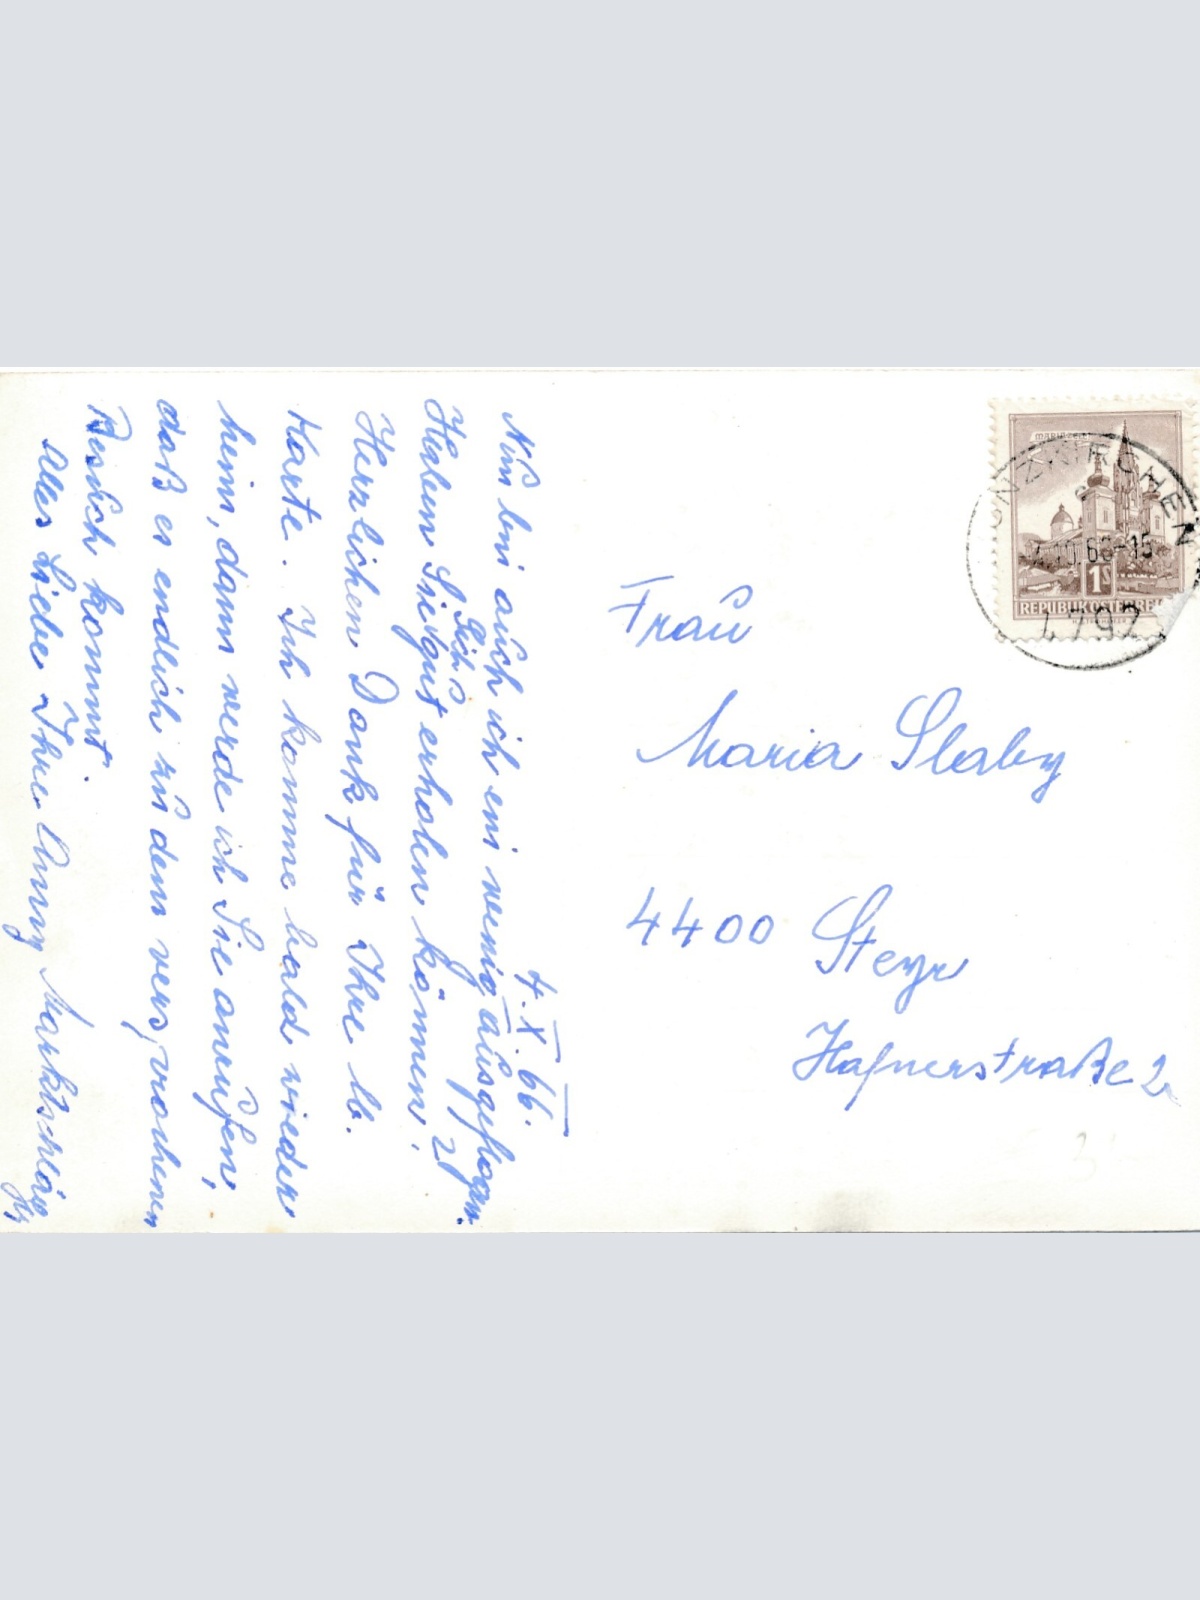 4. X. 66.
Nun bin auch ich ein wenig ausgeflogen.
Haben Sie sich gut erholen können?
Herzlichen Dank für Ihre lb.
Karte. Ich komme bald wieder
heim, dann werde ich Sie anrufen,
daß es endlich zu dem versprochenen
Besuch kommt.
Alles Liebe Ihre Anny Marktschläg
Frau
Maria Slaby
4400 Steyr
Hafnerstraße 2
MARIAZELL
1S
REPUBLIK ÖSTERREI
NZKIRCHEN
.10.66-15
4792